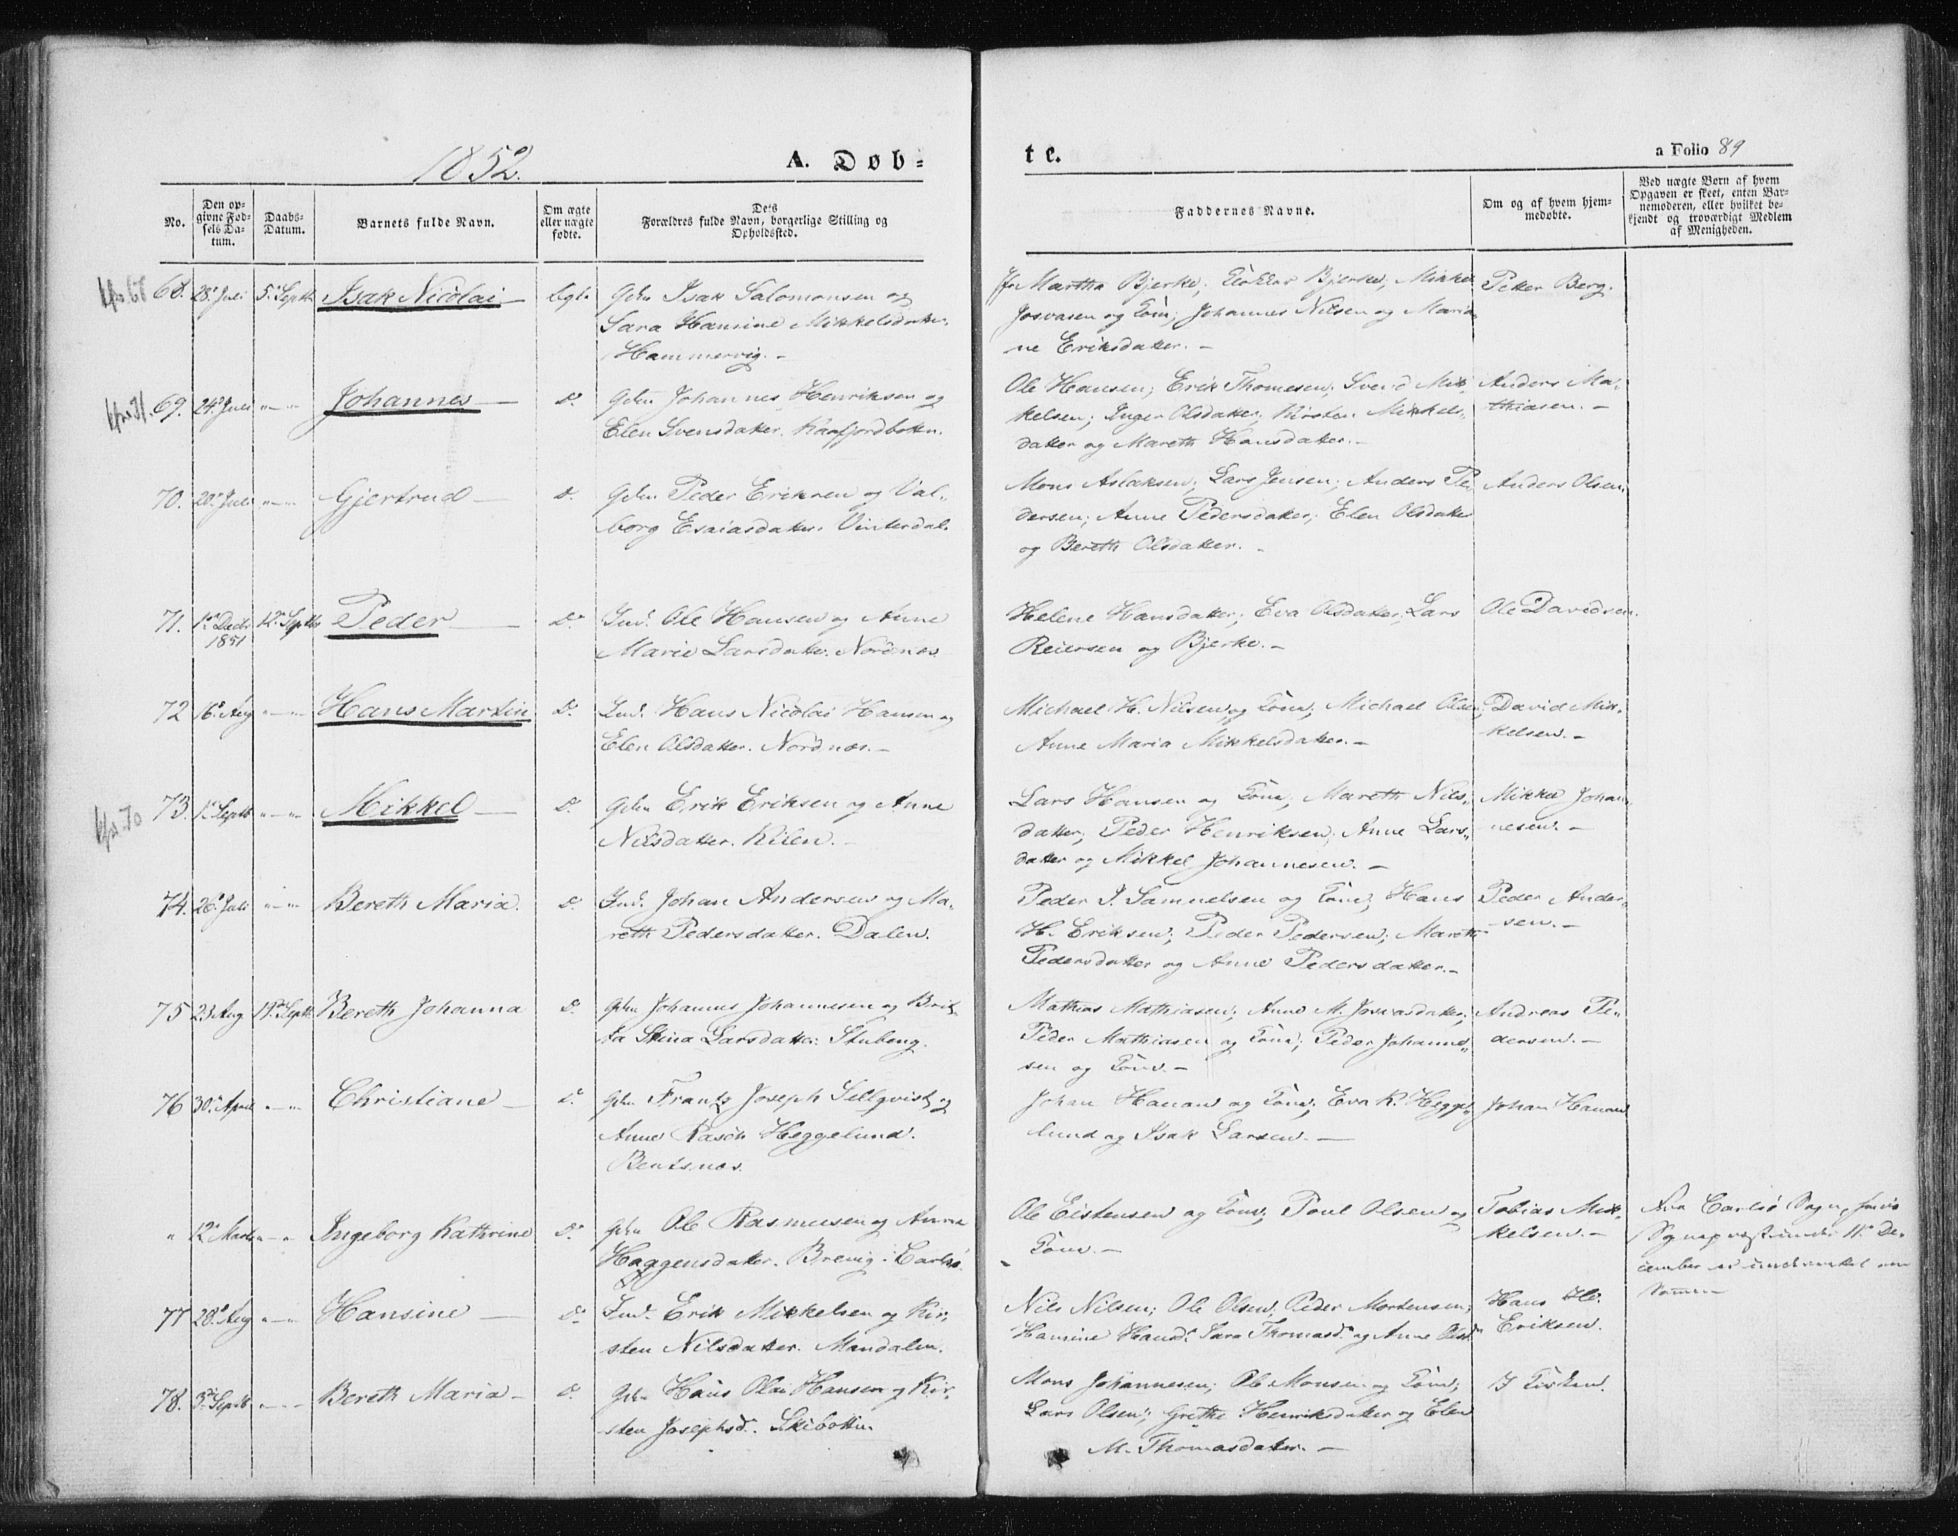 1852.
A. Døb=
te.
a Folio 89
No.
Den op-
givne Fød-
sels Da-
tum.
Daabs-
Datum.
Barnets fulde Navn.
Om ægte
eller uægte
fødte.
Dets
Forældres fulde Navn, borgerlige Stilling og
Opholdssted.
Faddernes Navne.
Om og af hvem hjem-
medøbte.
Ved uægte Børn af hvem
Opgaven er skeet, enten Bar-
nemoderen, eller hvilket be-
kjendt og troværdigt Medlem
af Menigheden.
68. 28. Juli 5. Septb Isak Nicolai
Isak Salomonsen og
Sara Hansine Mikkelsdatter.
Hammervig. -
Martha Bjerke; Bjerke, Mikkel
Josvasen og Kone; Johannes Nilsen og Maria
ne Eriksdatter. -
Peter Berg.
69. 24. Juli Johannes D.
Johannes Henriksen og
Elen Svensdatter. Kaafjordbotn.
Ole Hansen; Erik Thomesen; Svend Mik
kelsen; Inger Olsdatter, Kirsten Mikkels-
datter og Mareth Hansdatter. -
Anders Ma-
thiasen. -
70. 20. Juli Gjertrud D.
Peder Eriksen og Val-
borg Esaiasdatter. Vinterdal.
Mons Aslaksen; Lars Jensen; Anders Pe-
dersen; Anne Pedersdatter; Elen Olsdatter
og Bereth Olsdatter. -
Anders Olsen.
71. 1. Decbr 1851 12. Septbr Peder D.
Ind. Ole Hansen og Anne
Marie Larsdatter. Nordnæs
Helene Hansdatter; Eva Olsdatter, Lars
Reiersen og Bjerke. -
Ole Davidsen.
72 16. Aug Hans Martin D.
Ind. Hans Nicolai Hansen og
Elen Olsdatter. Nordnæs. -
Michael H. Nilsen og Kone, Michael Olsen,
Anne Maria Mikkelsdatter. -
David Mik-
kelsen. -
73. 1. Septb Mikkel D.
Erik Eriksen og Anne
Nilsdatter. Kiilen. -
Lars Hansen og Kone, Mareth Nils-
datter, Peder Henriksen, Anne Lars-
datter og Mikkel Johannesen. -
Mikkel Johan-
nesen. -
74. 26. Juli Bereth Maria. D.
Ind. Johan Andersen og Ma-
reth Pedersdatter. Dalen.
Peder I. Samuelsen og Kone, Hans
H. Eriksen, Peder Pedersen, Mareth
Pedersdatter og Anne Pedersdatter. -
Peder Ander-
sen. -
75 23 Aug 19. Septb. Bereth Johanna D.
Johannes Johannesen og Brit
ta Stina Larsdatter. Stubeng.
Mathias Mathiasen; Anne M. Josvasdatter,
Peder Mathiasen og Kone; Peder Johanne-
sen og Kone. -
Andreas Pe-
dersen. -
76 30. April Christiane D.
Frantz Joseph Sellqvist og
Anne Rasch Heggelund.
Bentsnæs.
Johan Hanau og Kone, Eva K. Hegge-
lund og Isak Larsen. -
Johan Hanau
" 12. Marts Ingeborg Kathrine D.
Ole Rasmusen og Anna
Haggensdatter. Brevig i Carlsø.
Ole Eistensen og Kone, Poul Olsen og
Kone. -
Tobias Mik-
kelsen. -
Carlsø Sogn,
Sognepræst under 11. De-
cember er underrettet om
Samme
77 20. Aug Hansine D.
Ind. Erik Mikkelsen og Kir-
sten Nilsdatter. Mandalen.
Nils Nilsen; Ole Olsen, Peder Mortensen,
Hansine Hansd. Sara Thomasd. og Anne Olsd.
Hans
Eriksen.
78. 3. Septb Bereth Maria D.
Hans Olai Hansen og Kir-
sten Josephsd. Skibotten.
Mons Johannesen; Ole Monsen og Kone;
Lars Olsen; Grethe Henriksdatter og Elen
M. Thomasdatter. -
I Kirken.